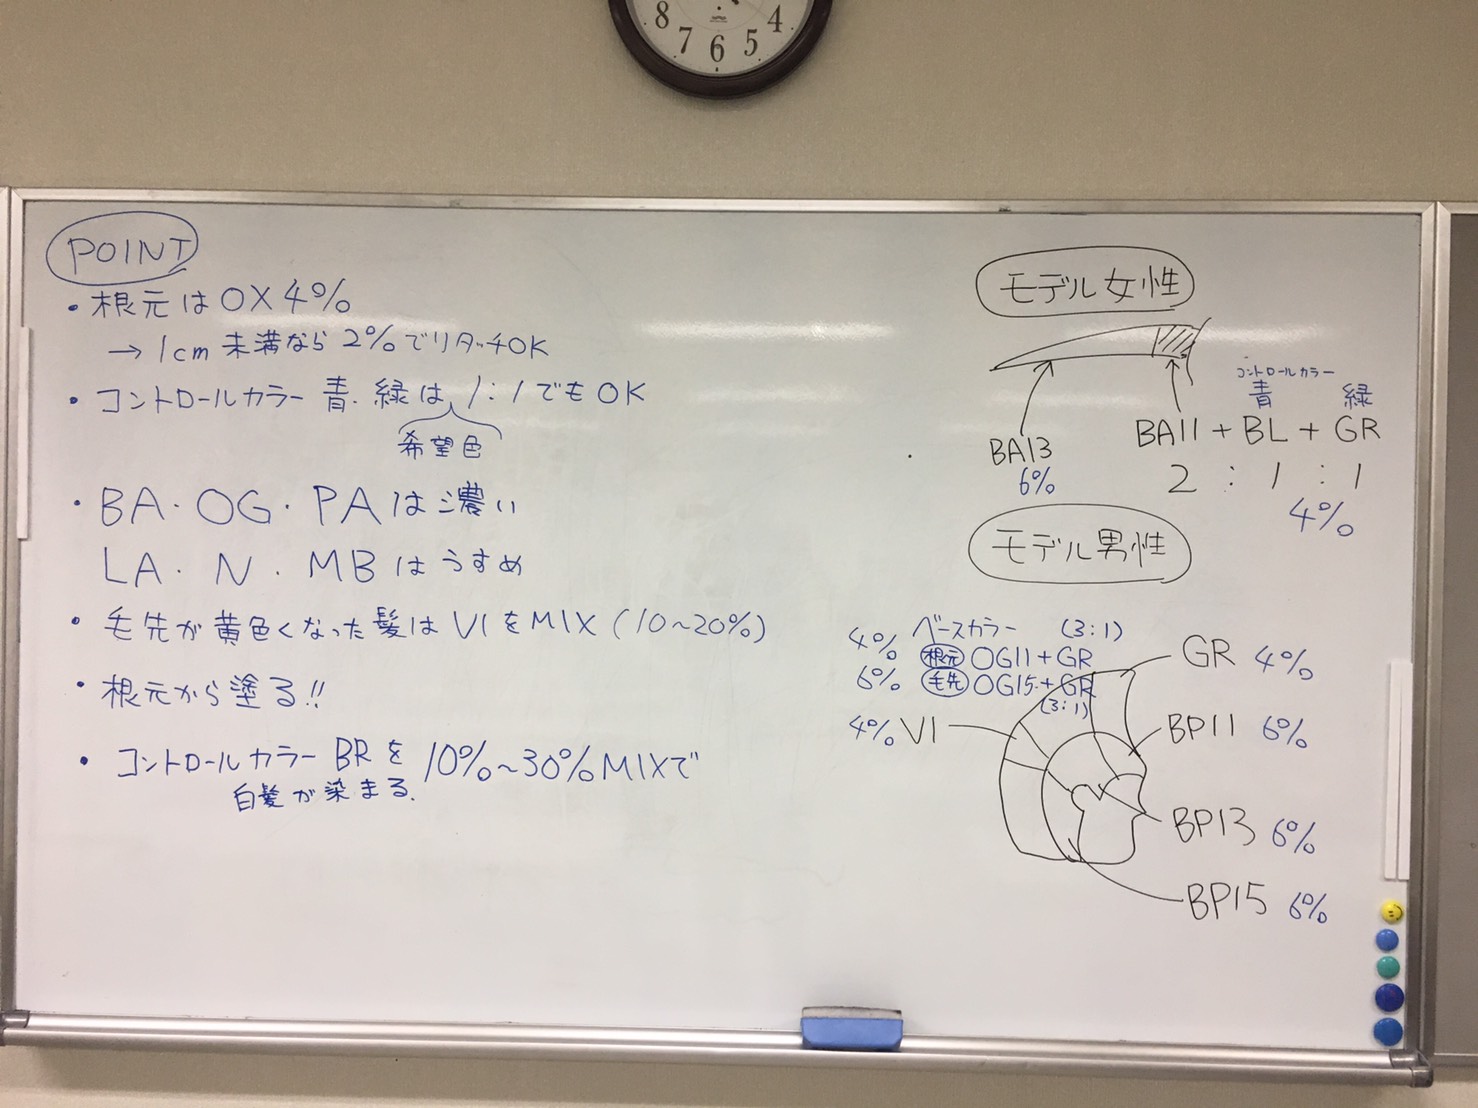 8 7 6 5 4
POINT
・根元はOX4%
→1cm未満なら2%でリタッチOK
・コントロールカラー青.緑は1:1でもOK
希望色
・BA・OG・PAは濃い
LA・N・MBはうすめ
・毛先が黄色くなった髪はVIをMIX(10~20%)
・根元から塗る!!
・コントロールカラーBRを10%~30%MIXで
白髪が染まる.
モデル女性
コントロールカラー
青 緑
BA13
6%
BA11+BL+GR
2:1:1
4%
モデル男性
ベースカラー (3:1)
4% 根元 OG11+GR
6% 毛先 OG15+GR
(3:1)
4% VI
GR 4%
BP11 6%
BP13 6%
BP15 6%